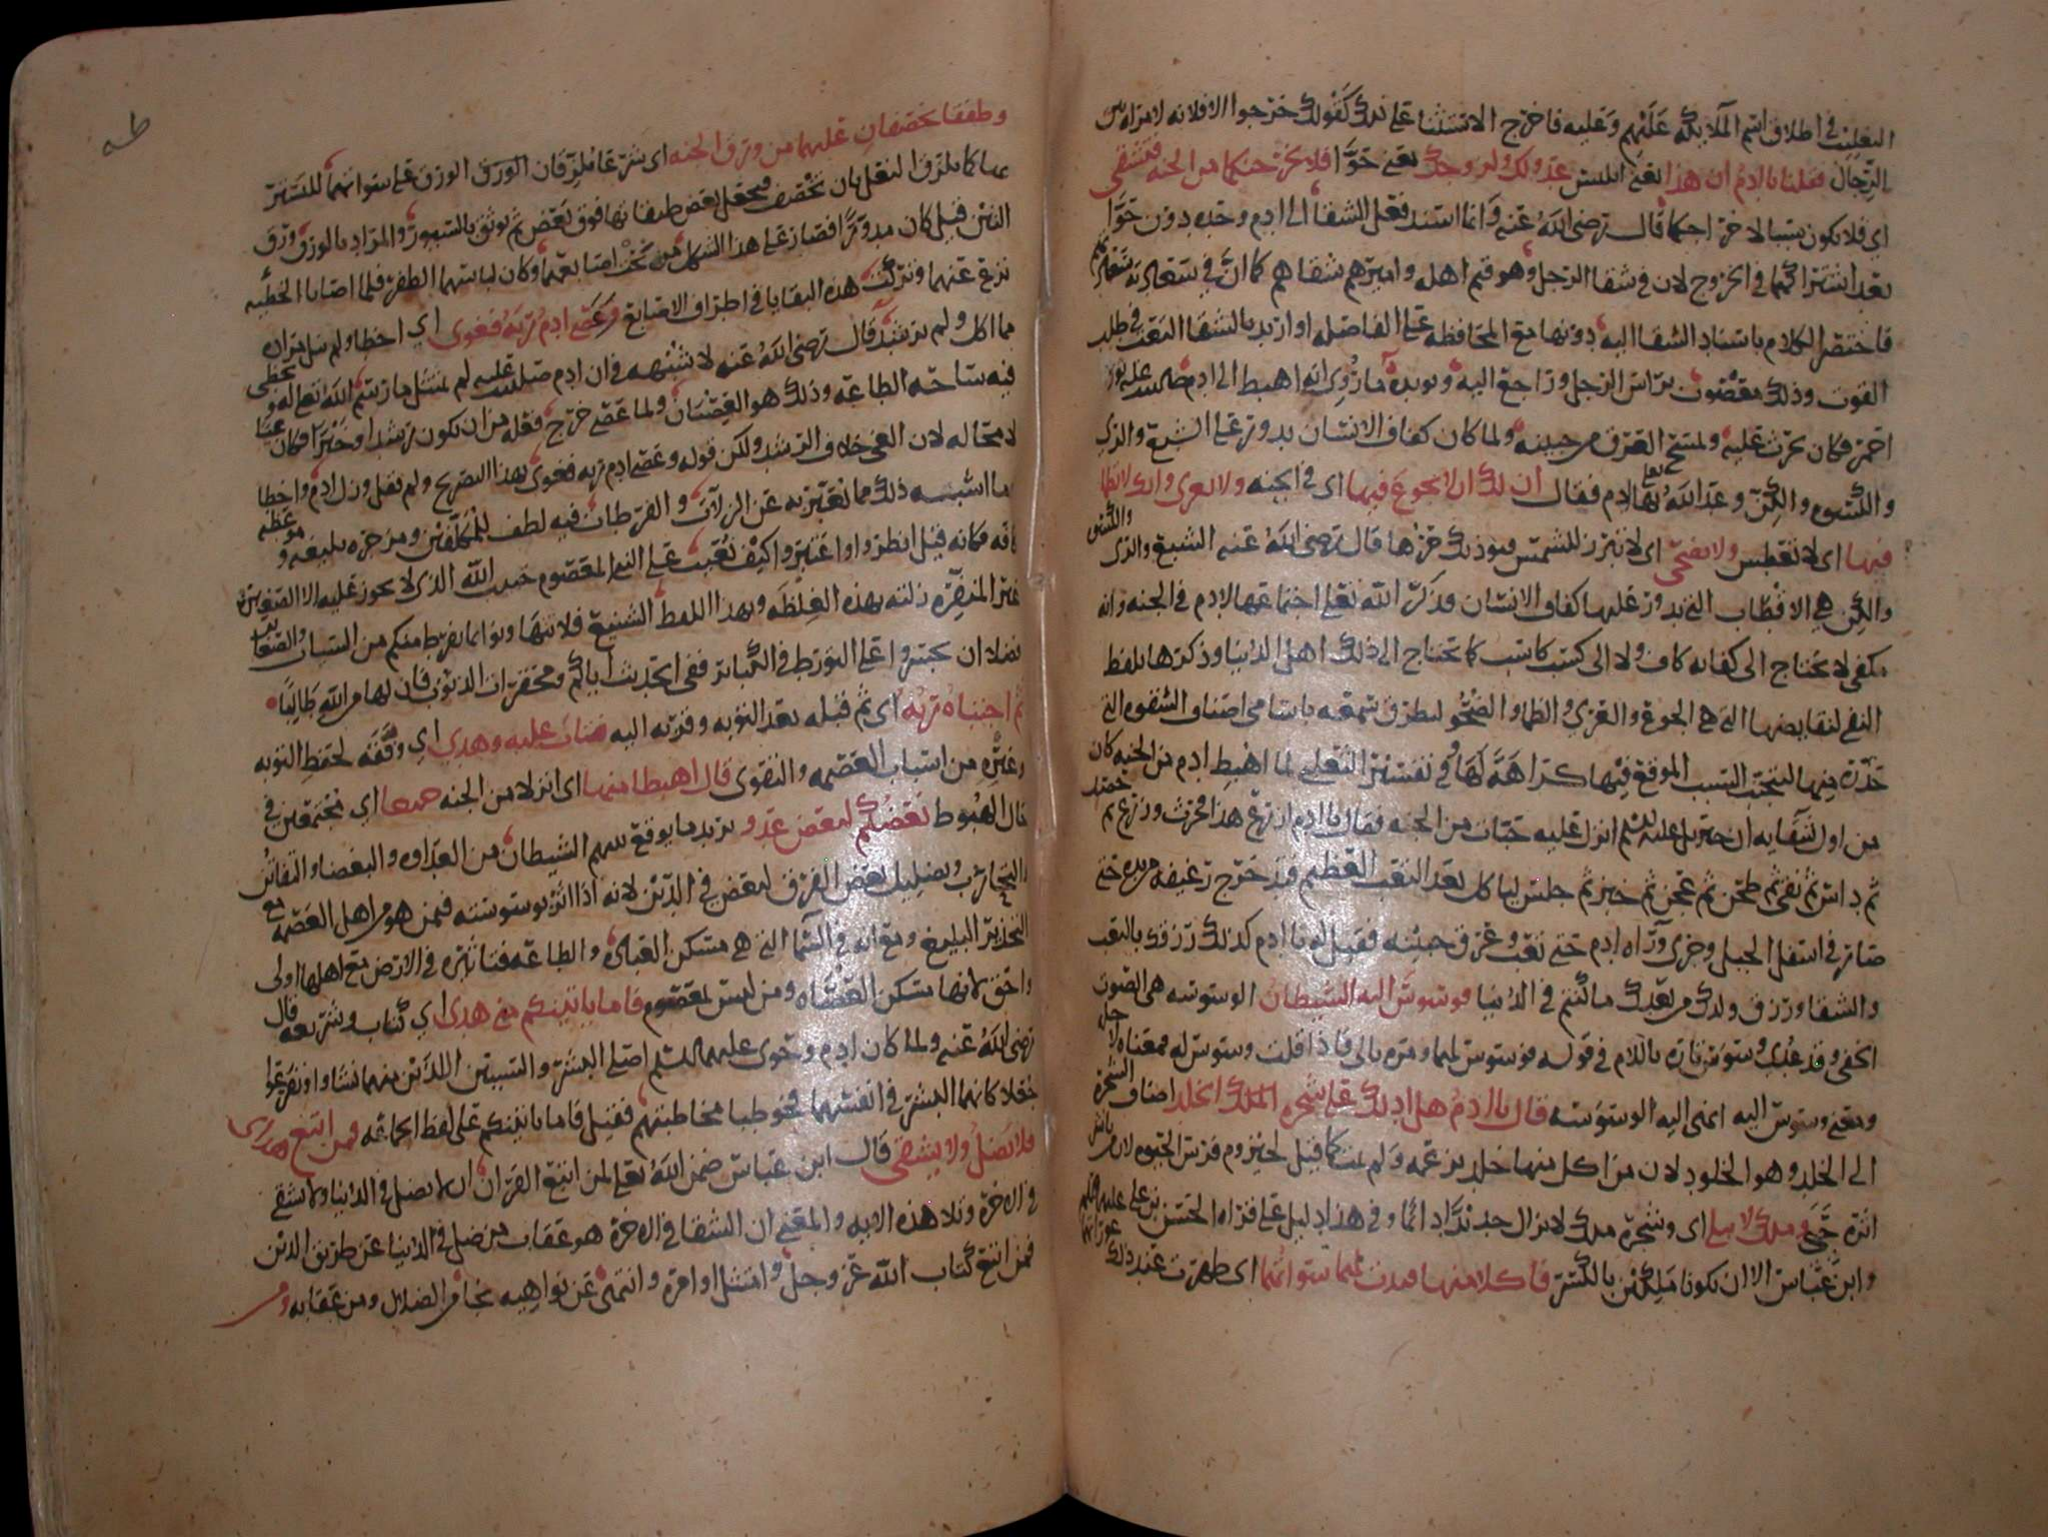 التغليب في اطلاق اسم الملايكة عليهم وعليه فاخرج الاستثنا على ذلك كقولك خرجوا الا فلانه لامراه بين
الرجال فقلنا يا ادم ان هذا يعني ابليس عدو لك ولزوجك يعني حوا فلا يخرجنكما من الجنه فتشقى
اي فلا يكون سببا لاخراجكما قال رضي الله عنه وانما اسند فعل الشقا الى ادم وحده دون حوا
بعد اشتراكهما في الخروج لان في شقا الرجل وهو قيم اهله واميرهم شقاهم كما ان في سعادته سعادتهم
فاختصر الكلام باسناد الشقا اليه دونها مع المحافظه على الفاصله او اريد بالشقا التعب في طلب
القوت وذلك معصوب براس الرجل وراجع اليه ويويده ما روي انه اهبط الى ادم ثور
احمر فكان يحرث عليه ويمسح العرق من جبينه ولما كان كفاف الانسان يدور على الشبع والري
والكسوه والكن وعد الله تعالى بها لادم فقال ان لك ان لا تجوع فيها اي في الجنه ولا تعرى وانك لا تظما
فيها اي لا تعطش ولا تضحى اي لا تبرز للشمس فيوذيك حرها قال رضي الله عنه الشبع والري والكسوه
والكن هي الاقطاب التي يدور عليها كفاف الانسان فذكر الله تعلى اجتماعها لادم في الجنه وانه
مكفي لا يحتاج الى كفايه كاف ولا الى كسب كاسب كما يحتاج الى ذلك اهل الدنيا وذكرها بلفظ
النفي لنقايضها التي هي الجوع والعري والظما والضحو ليطرق سمعه باسامي اصناف الشقوه التي
حذره منها ليتجنب السبب الموقع فيها كراهة لها وفي تفسير الثعلبي لما اهبط ادم من الجنه كان
من اول شقايه ان جبريل عليه السلم انزل عليه حبات من الجنه فقال يا ادم ازرع هذا فحرث وزرع ثم حصد
ثم داس ثم نقى ثم طحن ثم عجن ثم خبز ثم جلس لياكل بعد التعب العظيم فتدحرج رغيفه من يده حتى
صار في اسفل الجبل وجرى وراه ادم حتى تعب وعرق جبينه فقيل له يا ادم كذلك رزقك بالتعب
والشقا ورزق ولدك من بعدك ما كنتم في الدنيا فوسوس اليه الشيطان الوسوسه هي الصوت
الخفي وقد عدى وسوس تاره باللام في قوله فوسوس لهما ومره بالى فاذا قلت وسوس له فمعناه لاجله
ومعنى وسوس اليه انهى اليه الوسوسه قال يا ادم هل ادلك على شجره الخلد اضاف الشجره
الى الخلد وهو الخلود لان من اكل منها خلد بزعمه ولم يمت كما قيل لحيزوم فرس الحيوه لان من باشر
اثره حيي وملك لا يبلى اي وشجره ملك لا يزال جديدا دائما وفي هذا دليل على قراه الحسن بن علي
وابن عباس الا ان تكونا ملكين بالكسر فاكلا منها فبدت لهما سواتهما اي ظهرت عند ذلك عوراتهما
طه
وطفقا يخصفان عليهما من ورق الجنه اي شرعا يلزقان الورق على سواتهما للتستر
كما يلزق النعل بان تخصف ويجعل بعض طبقاتها فوق بعض ثم يوثق بالسيور والمراد بالورق ورق
التين قيل كان مدورا فصار على هذا الشكل من تحت اصابعهما وكان لباسهما الظفر فلما اصابا الخطيه
نزع عنهما وتركت هذه البقايا في اطراف الاصابع وعصى ادم ربه فغوى اي اخطا ولم ينل مراده
مما اكل ولم يرشد قال رضي الله عنه لا شبهه في ان ادم لم يمتثل ما رسم الله تعالى له وتخطى
فيه ساحه الطاعه وذلك هو العصيان ولما عصى خرج فعله من ان يكون رشدا وخيرا فكان غيا
لا محاله لان الغي خلاف الرشد ولكن قوله وعصى ادم ربه فغوى بهذا التصريح ولم يقل وزل ادم واخطا
وما اشبه ذلك مما يعبر به عن الزلات والفرطات فيه لطف للمكلفين ومزجره بليغه وموعظه
كافه فكانه قيل انظروا واعتبروا كيف نعيت على النبي المعصوم حبيب الله الذي لا يجوز عليه الا الصغيره
غير المنفره زلته بهذه الغلظه وبهذا اللفظ الشنيع فلا تتهاونوا بما يفرط منكم من السيات والصغاير
فضلا ان تجسروا على التورط في الكباير ففي الحديث اياكم ومحقرات الذنوب فان لها من الله طالبا
ثم اجتباه ربه اي ثم قبله بعد التوبه وقربه اليه فتاب عليه وهدى اي وفقه لحفظ التوبه
وغيره من اسباب العصمه والتقوى قال اهبطا منها اي انزلا من الجنه جميعا اي مجتمعين في
حال الهبوط بعضكم لبعض عدو يريد ما يوقع بينهم الشيطان من العداوه والبغضا والتقاتل
والتحارب وتضليل بعض الفرق لبعض في الدين لانه اذا اثر بوسوسته فيمن هو من اهل العصمه مع
التحذير البليغ ومع انه في السما التي هي مسكن العباده والطاعه فتاثيره في الارض مع اهلها اولى
واحق لانها مسكن العصاه ومن ليس بمعصوم فاما ياتينكم مني هدى اي كتاب وشريعه قال
رضي الله عنه ولما كان ادم وحوى عليهما السلم اصلي البشر والسببين اللذين منهما نشاوا وتفرعوا
جعلا كانهما البشر في انفسهما فخوطبا مخاطبتهم فقيل فاما ياتينكم على لفظ الجماعه فمن اتبع هداي
فلا يضل ولا يشقى قال ابن عباس ضمن الله تعلى لمن اتبع القران ان لا يضل في الدنيا ولا يشقى
في الاخره وتلا هذه الايه والمعنى ان الشقا في الاخره هو عقاب من ضل في الدنيا عن طريق الدين
فمن اتبع كتاب الله عز وجل وامتثل اوامره وانتهى عن نواهيه نجا من الضلال ومن عقابه ومن